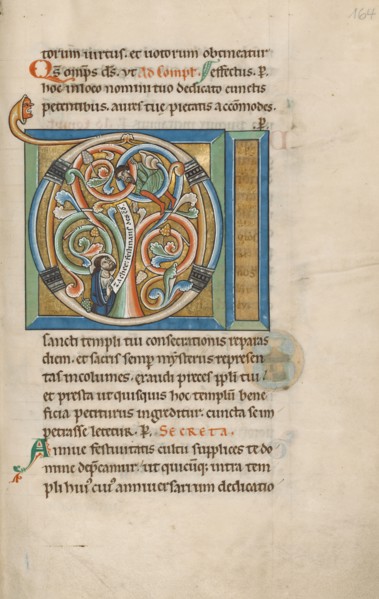 164
torum uirtus. et uotorum obtineatur
Qs omps ds. ut Ad compl. effectus. P.
hoc in loco nomini tuo dedicato cunctis
petentibus. aures tue pietatis accomodes.
P.
D
zachee festinans des
sancti templi tui consecrationis reparas
diem. et sacris semp mysteriis represen
tas incolumes. exaudi preces ppli tui.
et presta ut quisquis hoc templū bene
ficia petiturus ingreditur. cuncta se im
petrasse letetur. P. SECRETA.
supplices te do
mine dep̄camur. ut quicūq; intra tem
pli hui' cui' anniuersarium dedicatio